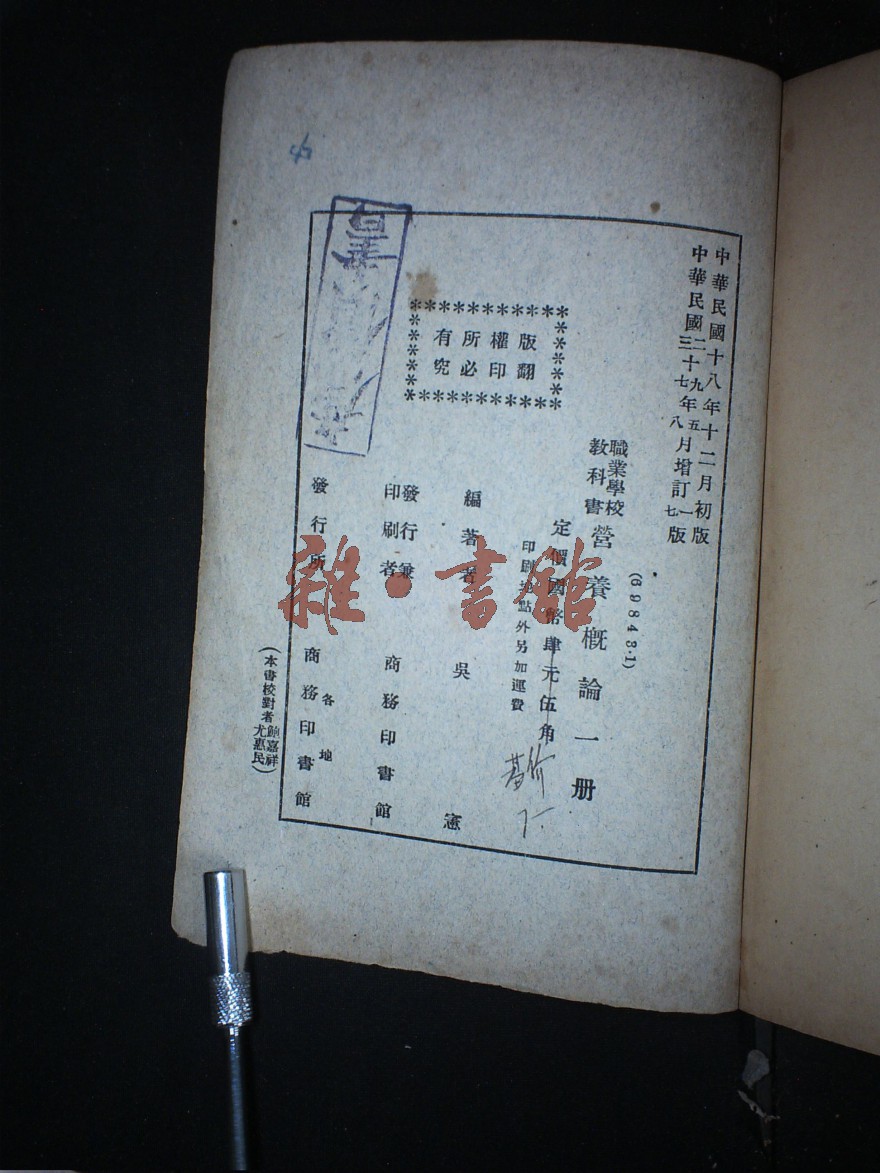 中華民國十八年十二月初版
中華民國二十九年五月增訂一版
三十七年八月七版
(69843·1)
職業學校教科書 營養概論一册
定價國幣肆元伍角
印刷地點外另加運費
版權所有
翻印必究
編著者 吳憲
發行兼印刷者 商務印書館
發行所 各地商務印書館
(本書校對者鮑嘉祥尤惠民)
雜·書館